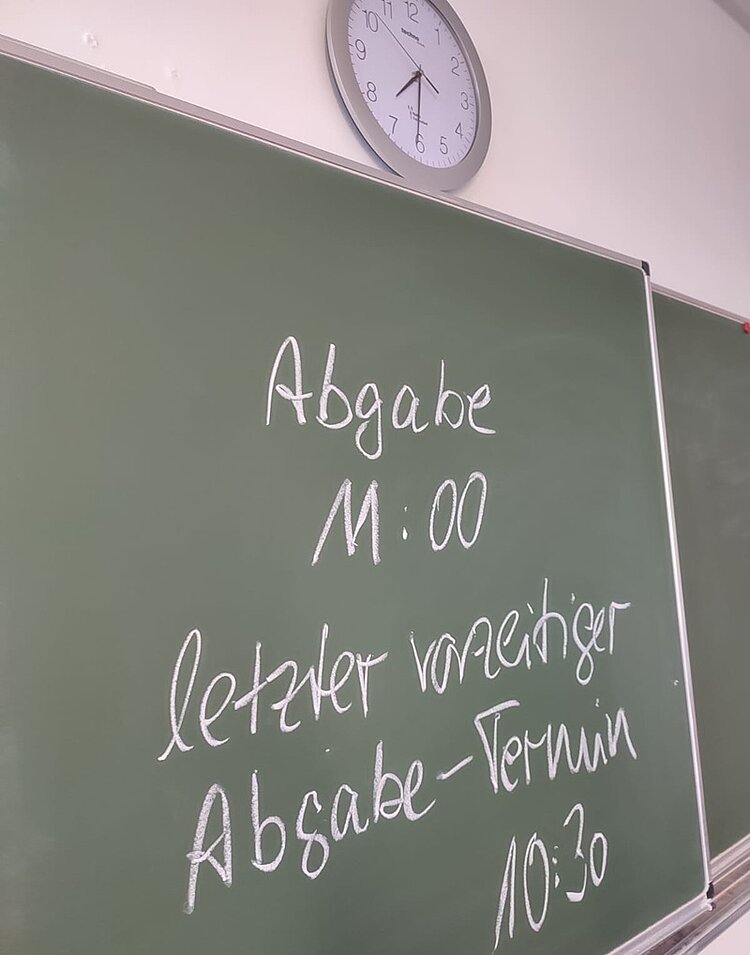 11 12 1
10 2
9 3
8 4
7 6 5
techno
Abgabe
11:00
letzter vorzeitiger
Abgabe-Termin
10:30